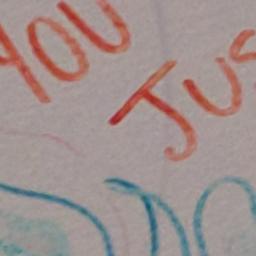 YOU
JUS